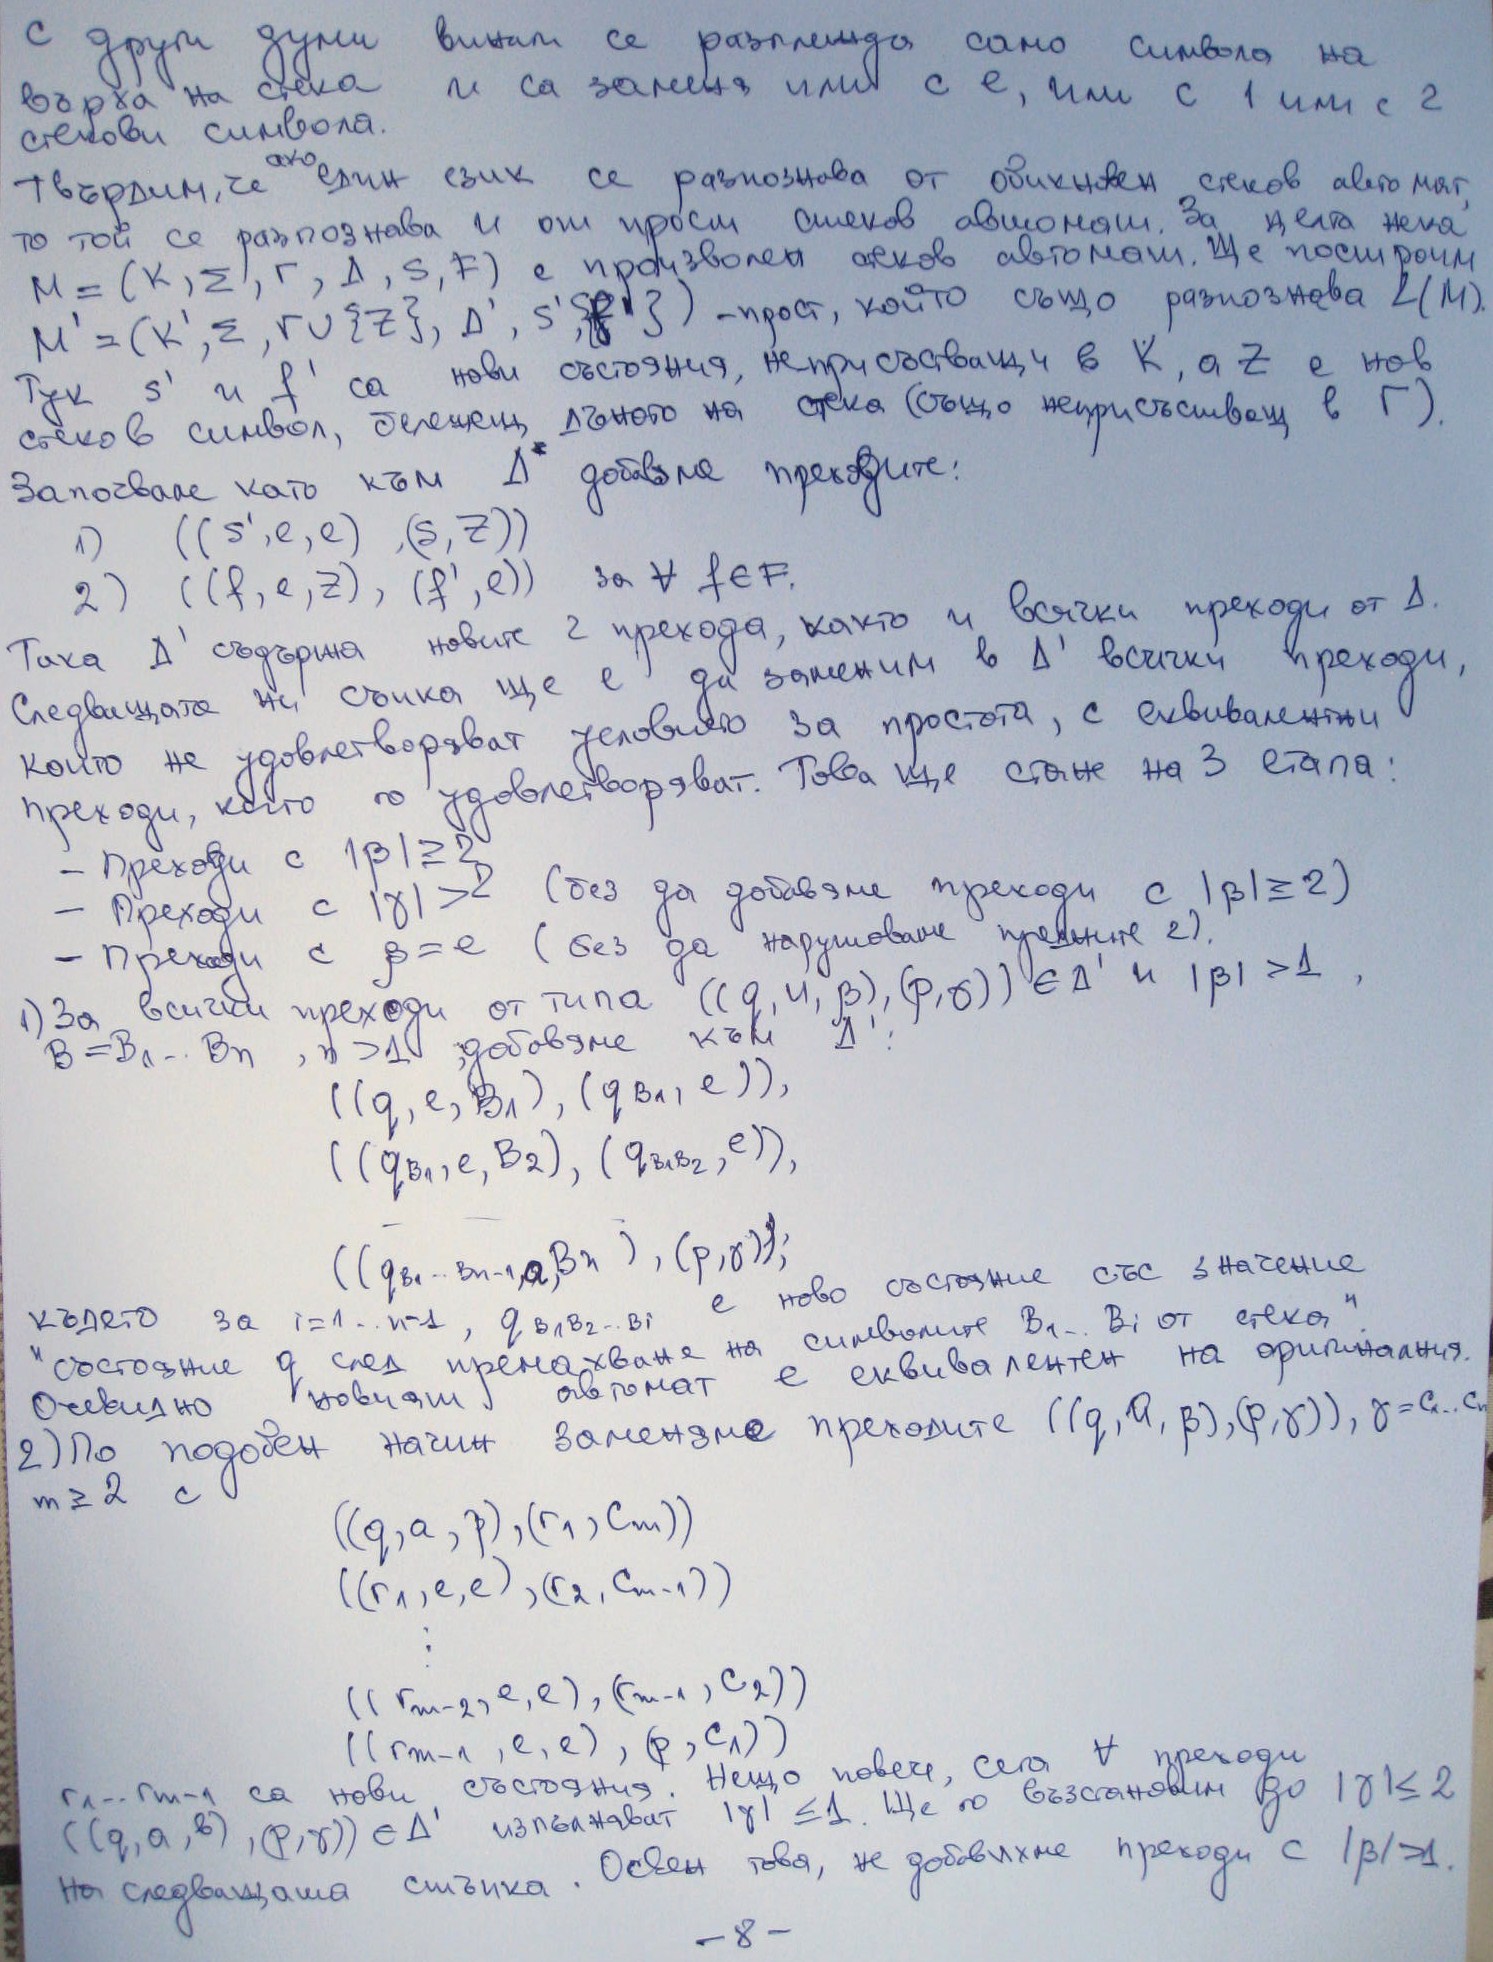 С други думи винаги се разглежда само символа на
върха на стека и са заменя или с e, или с 1 или с 2
стекови символа.
Твърдим, че ако един език се разпознава от обикновен стеков автомат,
то той се разпознава и от прост стеков автомат. За целта нека
M = (K, Σ, Γ, Δ, S, F) е произволен стеков автомат. Ще построим
M' = (K', Σ, Γ∪{Z}, Δ', S', {f'}) – прост, който също разпознава L(M).
Тук s' и f' са нови състояния, неприсъстващи в K, а Z е нов
стеков символ, бележещ дъното на стека (също неприсъстващ в Γ).
Започваме като към Δ' добавяме преходите:
1) ((s', e, e), (s, Z))
2) ((f, e, Z), (f', e)) за ∀ f∈F.
Така Δ' съдържа новите 2 прехода, както и всички преходи от Δ.
Следващата ни стъпка ще е да заменим в Δ' всички преходи,
които не удовлетворяват условието за простота, с еквивалентни
преходи, които го удовлетворяват. Това ще стане на 3 етапа:
– Преходи с |β| ≥ 2
– Преходи с |γ| > 2 (без да добавяме преходи с |β| ≥ 2)
– Преходи с β = e (без да нарушаваме предните 2).
1) За всички преходи от типа ((q, u, β), (p, γ)) ∈ Δ' и |β| > 1,
B = B₁... Bn, n > 1, добавяме към Δ':
((q, e, B₁), (qB₁, e)),
((qB₁, e, B₂), (qB₁B₂, e)),
– – –
((qB₁...Bn-1, a, Bn), (p, γ));
където за i = 1...n-1, qB₁B₂...Bi е ново състояние със значение
"състояние q след премахване на символите B₁... Bi от стека".
Очевидно новият автомат е еквивалентен на оригиналния.
2) По подобен начин заменяме преходите ((q, a, β), (p, γ)), γ = C₁...Cm
m ≥ 2 с
((q, a, β), (r₁, Cm))
((r₁, e, e), (r₂, Cm-1))
⋮
((rm-2, e, e), (rm-1, C₂))
((rm-1, e, e), (p, C₁))
r₁... rm-1 са нови състояния. Нещо повече, сега ∀ преходи
((q, a, β), (p, γ)) ∈ Δ' изпълняват |γ| ≤ 1. Ще го възстановим до |γ| ≤ 2
на следващата стъпка. Освен това, не добавихме преходи с |β| > 1.
– 8 –